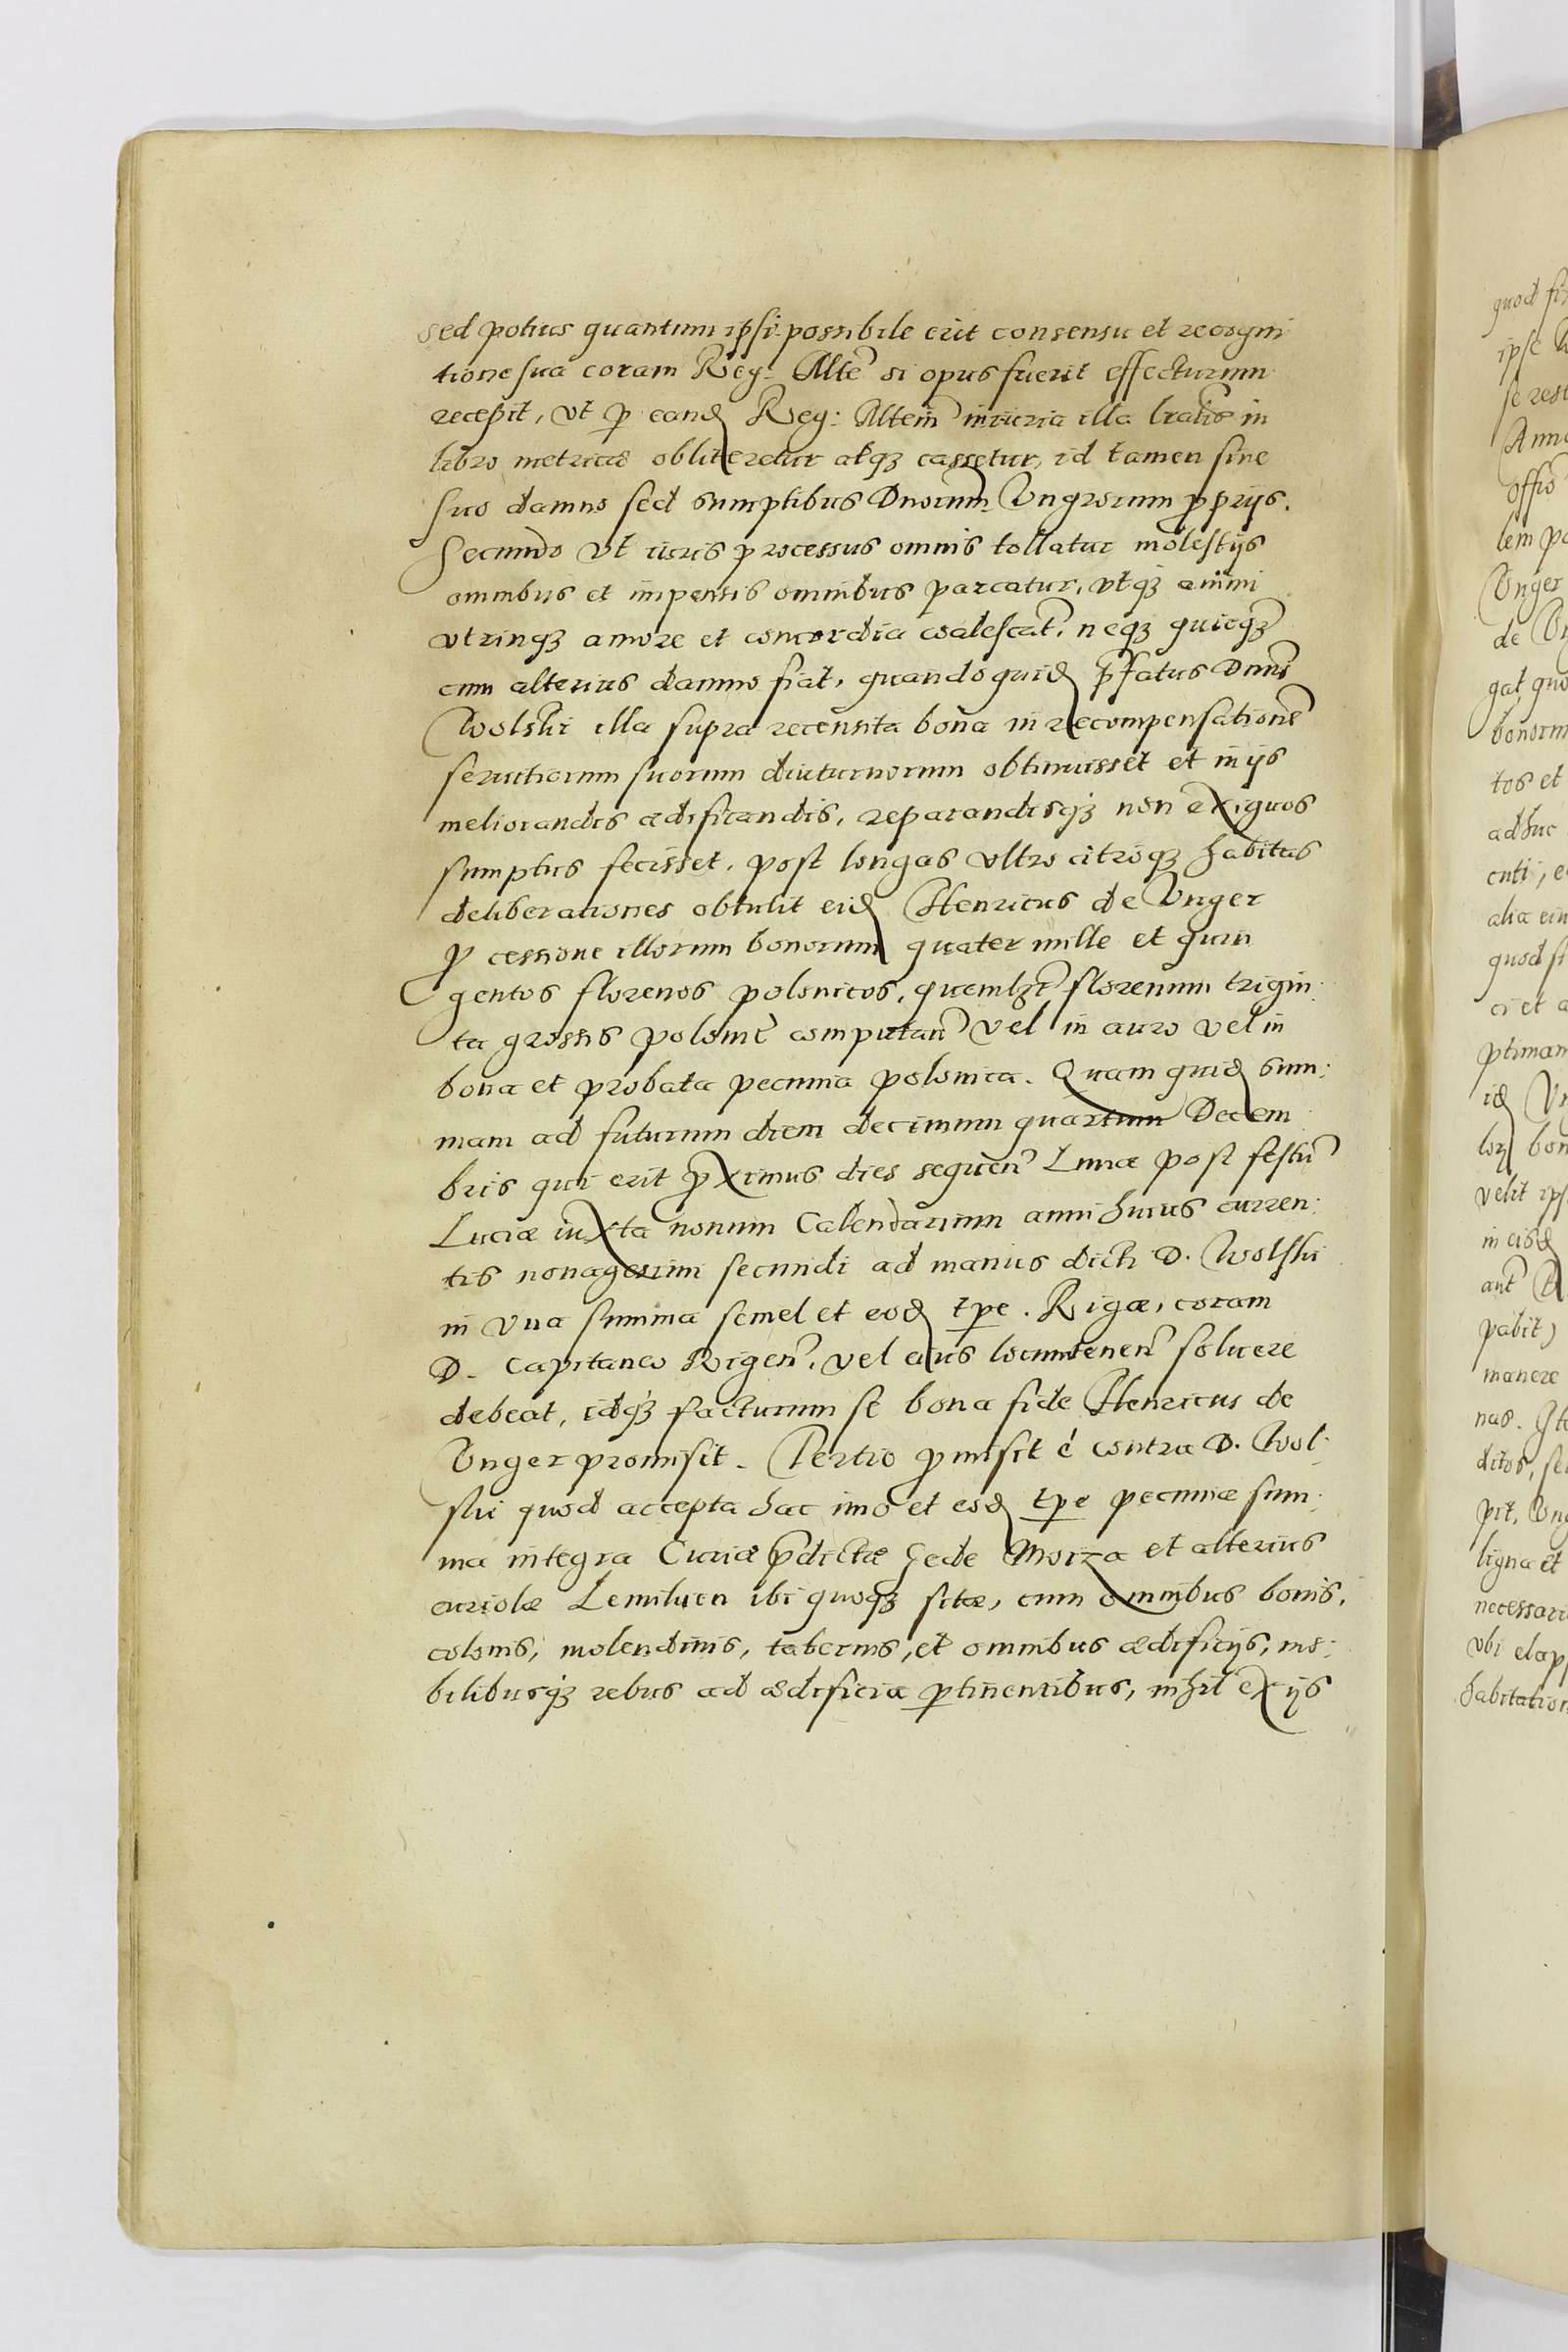 sed potius quantum ipsi possibile erit consensu et recogni
tione sua coram Reg: Alte si opus fuerit effecturum
recepit, vt p eand Reg: Altem iniuria illa in
libro metricæ obliteretur atq3 cassetur, id tamen sine
suo damno sed sumptibus Dnorum Vngrorum pprijs.
Secundo vt iuris processus omnis tollatur molestijs
omnibus et impensis omnibus parcatur, vtq3 animi
vtrinq3 amore et concordia coalescat, neq3 quicq3
cum alterius damno fiat, quandoquid pfatus Dnns
Wolski illa supra recensita bona in recompensatione
seruitiorum suorum diuturnorum obtinuisset et in ijs
meliorandis ædificandis, reparandisq3 non exiguos
sumptus fecisset, post longas vltro citroq3 habitas
deliberationes obtulit eid Henricus de Vnger
p cessione illorum bonorum quater mille et quin
gentos florenos polonicos, quemlꝫt florenum trigin:
ta grossis poloni computan vel in auro vel in
bona et probata pecunia polonica. Quam quid sum:
mam ad futurum diem decimum quartum Decem
bris qui erit pximus dies sequen Lunæ post festu
Luciæ iuxta nouum Calendarium anni huius curren:
tis nonagesimi secundi ad manus dicti D. Wolski
in vna summa semel et eod tpe. Rigæ, coram
D. Capitaneo Rigen, vel eius locumtenen soluere
debeat, idq3 facturum se bona fide Henricus de
Vnger promisit. Tertio pmisit é contra D. Wol:
ski quod accepta hac imo et eod tpe pecuniæ sum:
ma integra Curiæ pdictæ Sede Moiza et alterius
curiolæ Lemiluen ibi quoq3 sitæ, cum omnibus bonis,
colonis, molendinis, tabernis, et omnibus ædificijs, mo:
bilibusq3 rebus ad ædificia ptinentibus, nihil ex ijs